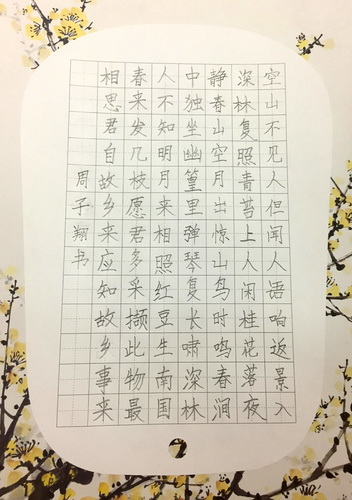 空山不见人但闻人语响返景入
深林复照青苔上人闲桂花落夜
静春山空月出惊山鸟时鸣春涧
中独坐幽篁里弹琴复长啸深林
人不知明月来相照红豆生南国
春来发几枝愿君多采撷此物最
相思君自故乡来应知故乡事来
周子翔书